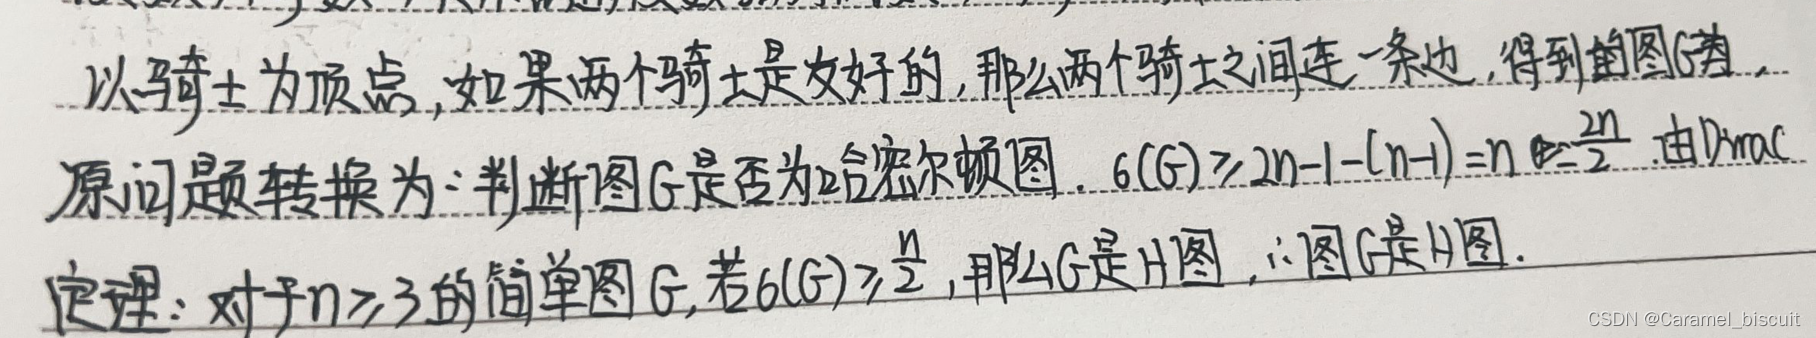 以骑士为顶点,如果两个骑士是友好的,那么两个骑士之间连一条边,得到的图G为,
原问题转换为:判断图G是否为哈密尔顿图. δ(G)≥2n-1-(n-1)=n=2n/2 .由Dirac
定理:对于n≥3的简单图G,若δ(G)≥n/2,那么G是H图,∴图G是H图.
CSDN @Caramel_biscuit